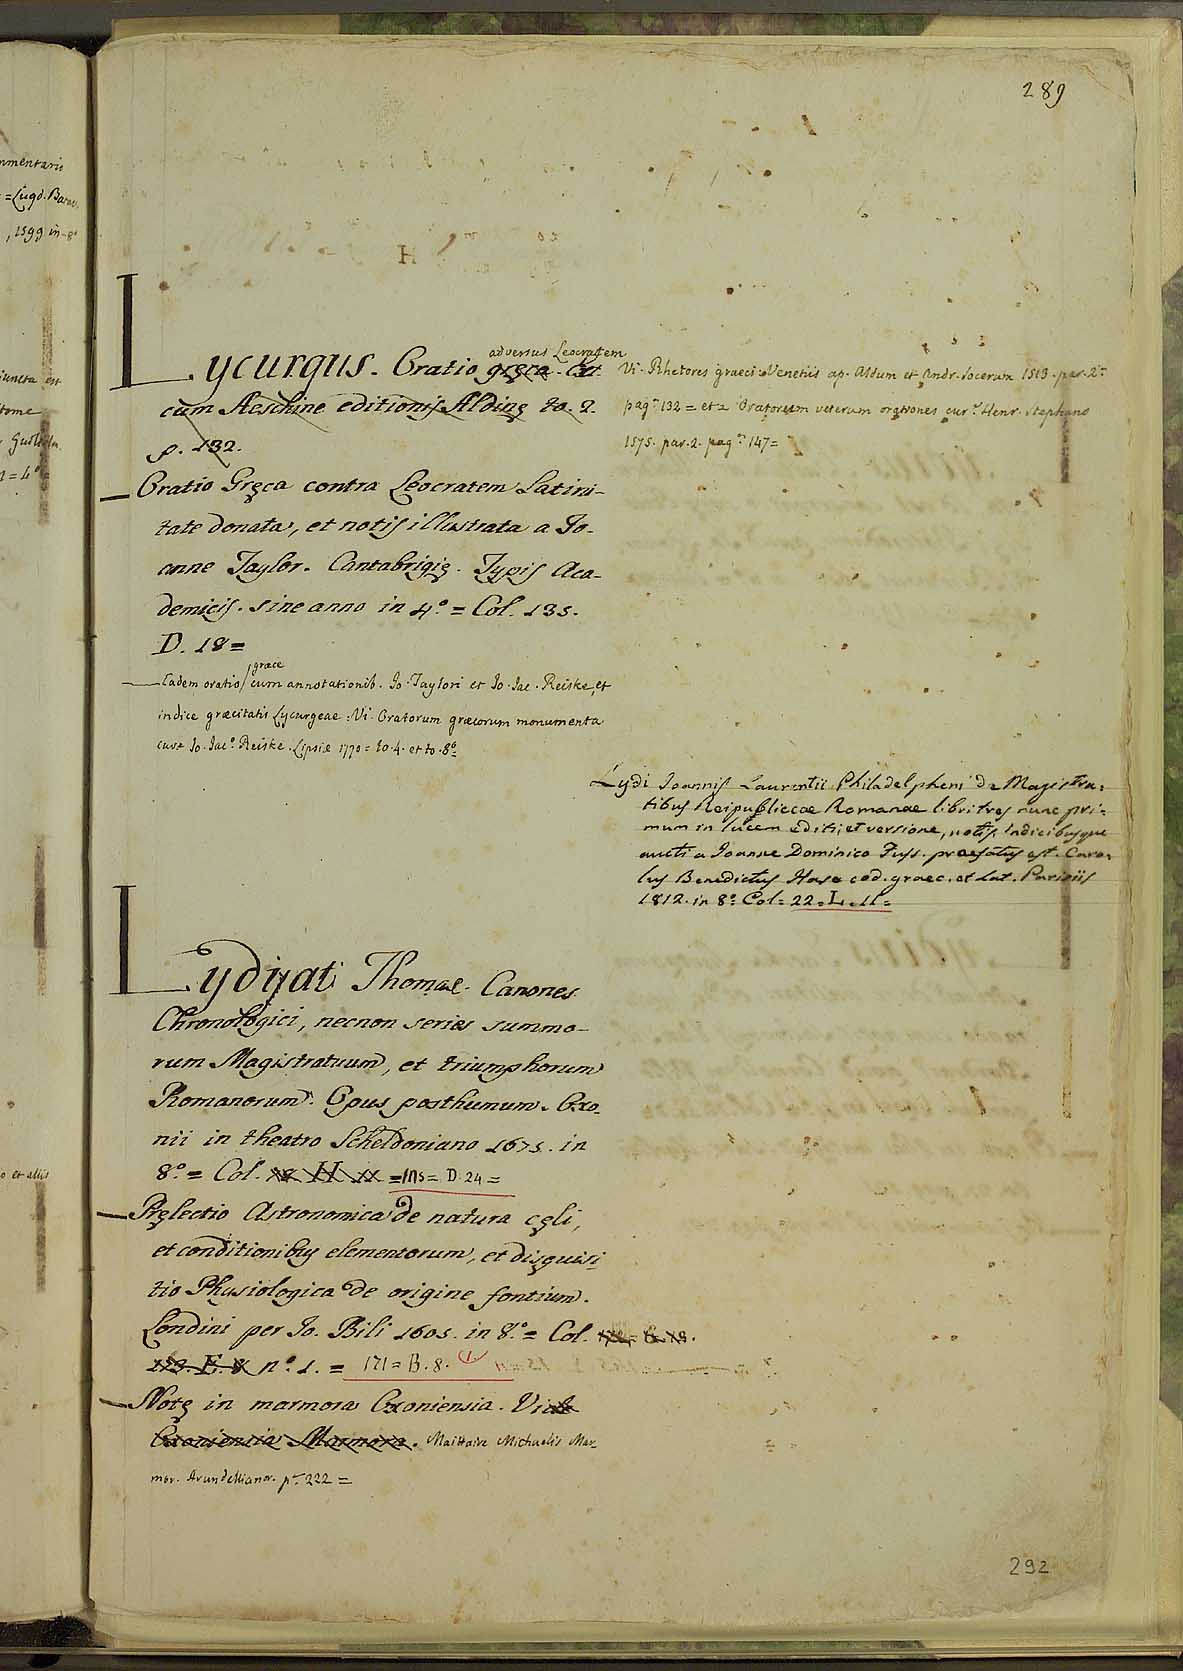 289
mmentariis
= Lugd. Batav.
, 1599 in-8°
iuncta est
tome
Lycurgus. Oratio gręca. Ext.
adversus Leocratem
cum Aeschine editionis Aldinę to. 2.
p. 132.
Vi. Rhetores graeci = Venetiis ap. Aldum et Andr. Socerum 1513. par. 2.ª
pag.ª 132 = et = Oratorum veterum orationes cur.e Henr. Stephano
1575. par. 2. pag.ª 147 =
Oratio Gręca contra Leocratem Latini-
tate donata, et notis illustrata a Jo-
anne Taylor. Cantabrigię. Typis Aca-
demicis. sine anno in 4.° = Col. 135.
D. 18 =
Eadem oratio / cum annotationib. Jo. Taylori et Jo. Jac. Reiske, et
græce
indice græcitatis Lycurgeae : Vi. Oratorum græcorum monumenta
cura Jo. Jac.° Reiske. Lipsiæ 1770 = to. 4. et to. 8.°
Lydi Joannis Laurentii Philadelpheni de Magistra-
tibus Reipubliccae Romanae libri tres nunc pri-
mum in lucem editi, et versione, notis, indicibusque
aucti a Joanne Dominico Fuss. praefatus est. Caro-
lus Benedictus Hase cod. graec. et Lat. Parisiis
1812. in 8.° Col = 22. L. 11 =
Lydyat Thomae. Canones
Chronologici, necnon series summo-
rum Magistratuum, et triumphorum
Romanorum. Opus posthumum. Oxo-
nii in theatro Scheldoniano 1675. in
8.° = Col. H = 115 = D. 24 =
Pręlectio Astronomica de natura cęli,
et conditionibus elementorum, et disquisi-
tio Physiologica de origine fontium.
Londini per Jo. Bili 1605. in 8.° = Col.
n.° 1. = 171 = B. 8. (1.
Notę in marmora Oxoniensia. Vide
Oxoniensia Marmora. Maittaire Michaelis Mar-
mor. Arundellianor. p.ª 222 =
o et aliis
292